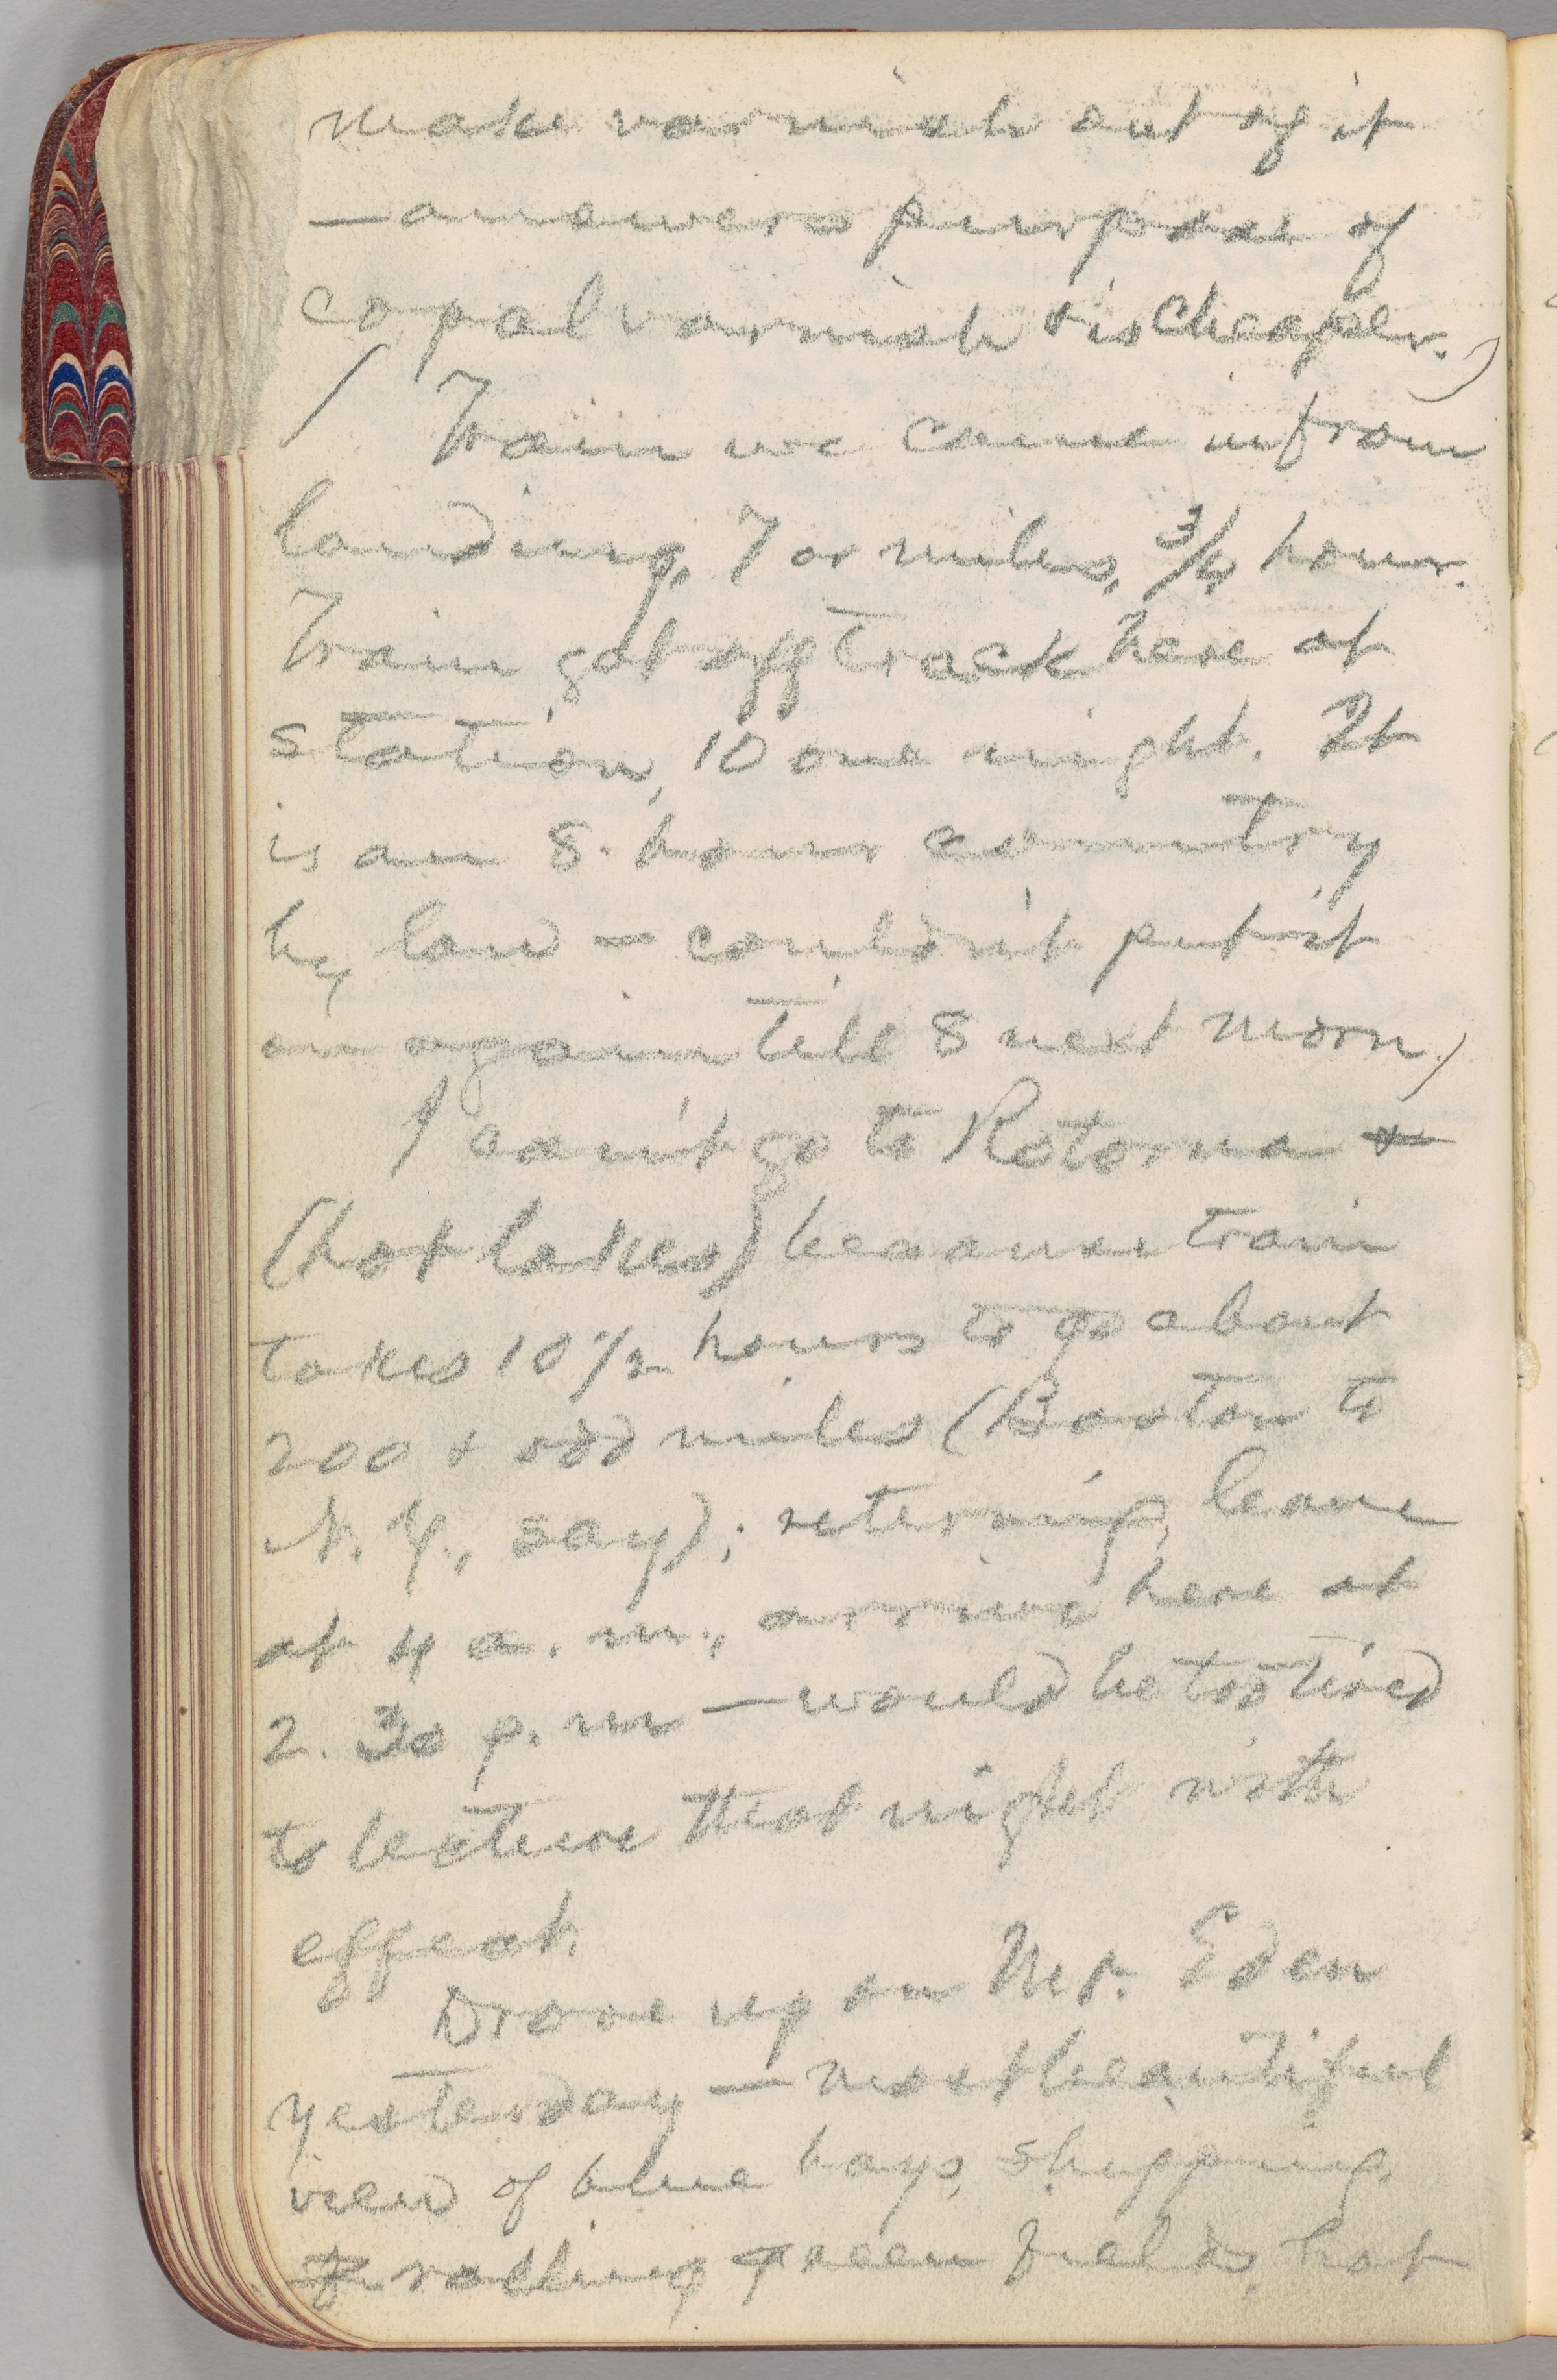 make varnish out of it
— answers purpose of
copal varnish & is cheaper.)
/ Train we came in from
landing, 7 or miles, 3/4 hour.
Train got off track here at
station, 10 one night. It
is an 8-hour country
by law — couldn't put it
on again till 8 next morn.)
I can't go to Rotorua
(hot lakes) because train
takes 10 1/2 hours to go about
200 & odd miles (Boston to
N. Y., say); returning, leave
at 4 a.m., arrive here at
2.30 p.m — would be too tired
to lecture that night with
effect.
Drove up on Mt. Eden
yesterday — most beautiful
view of blue bays, shipping,
rolling green fields, hot